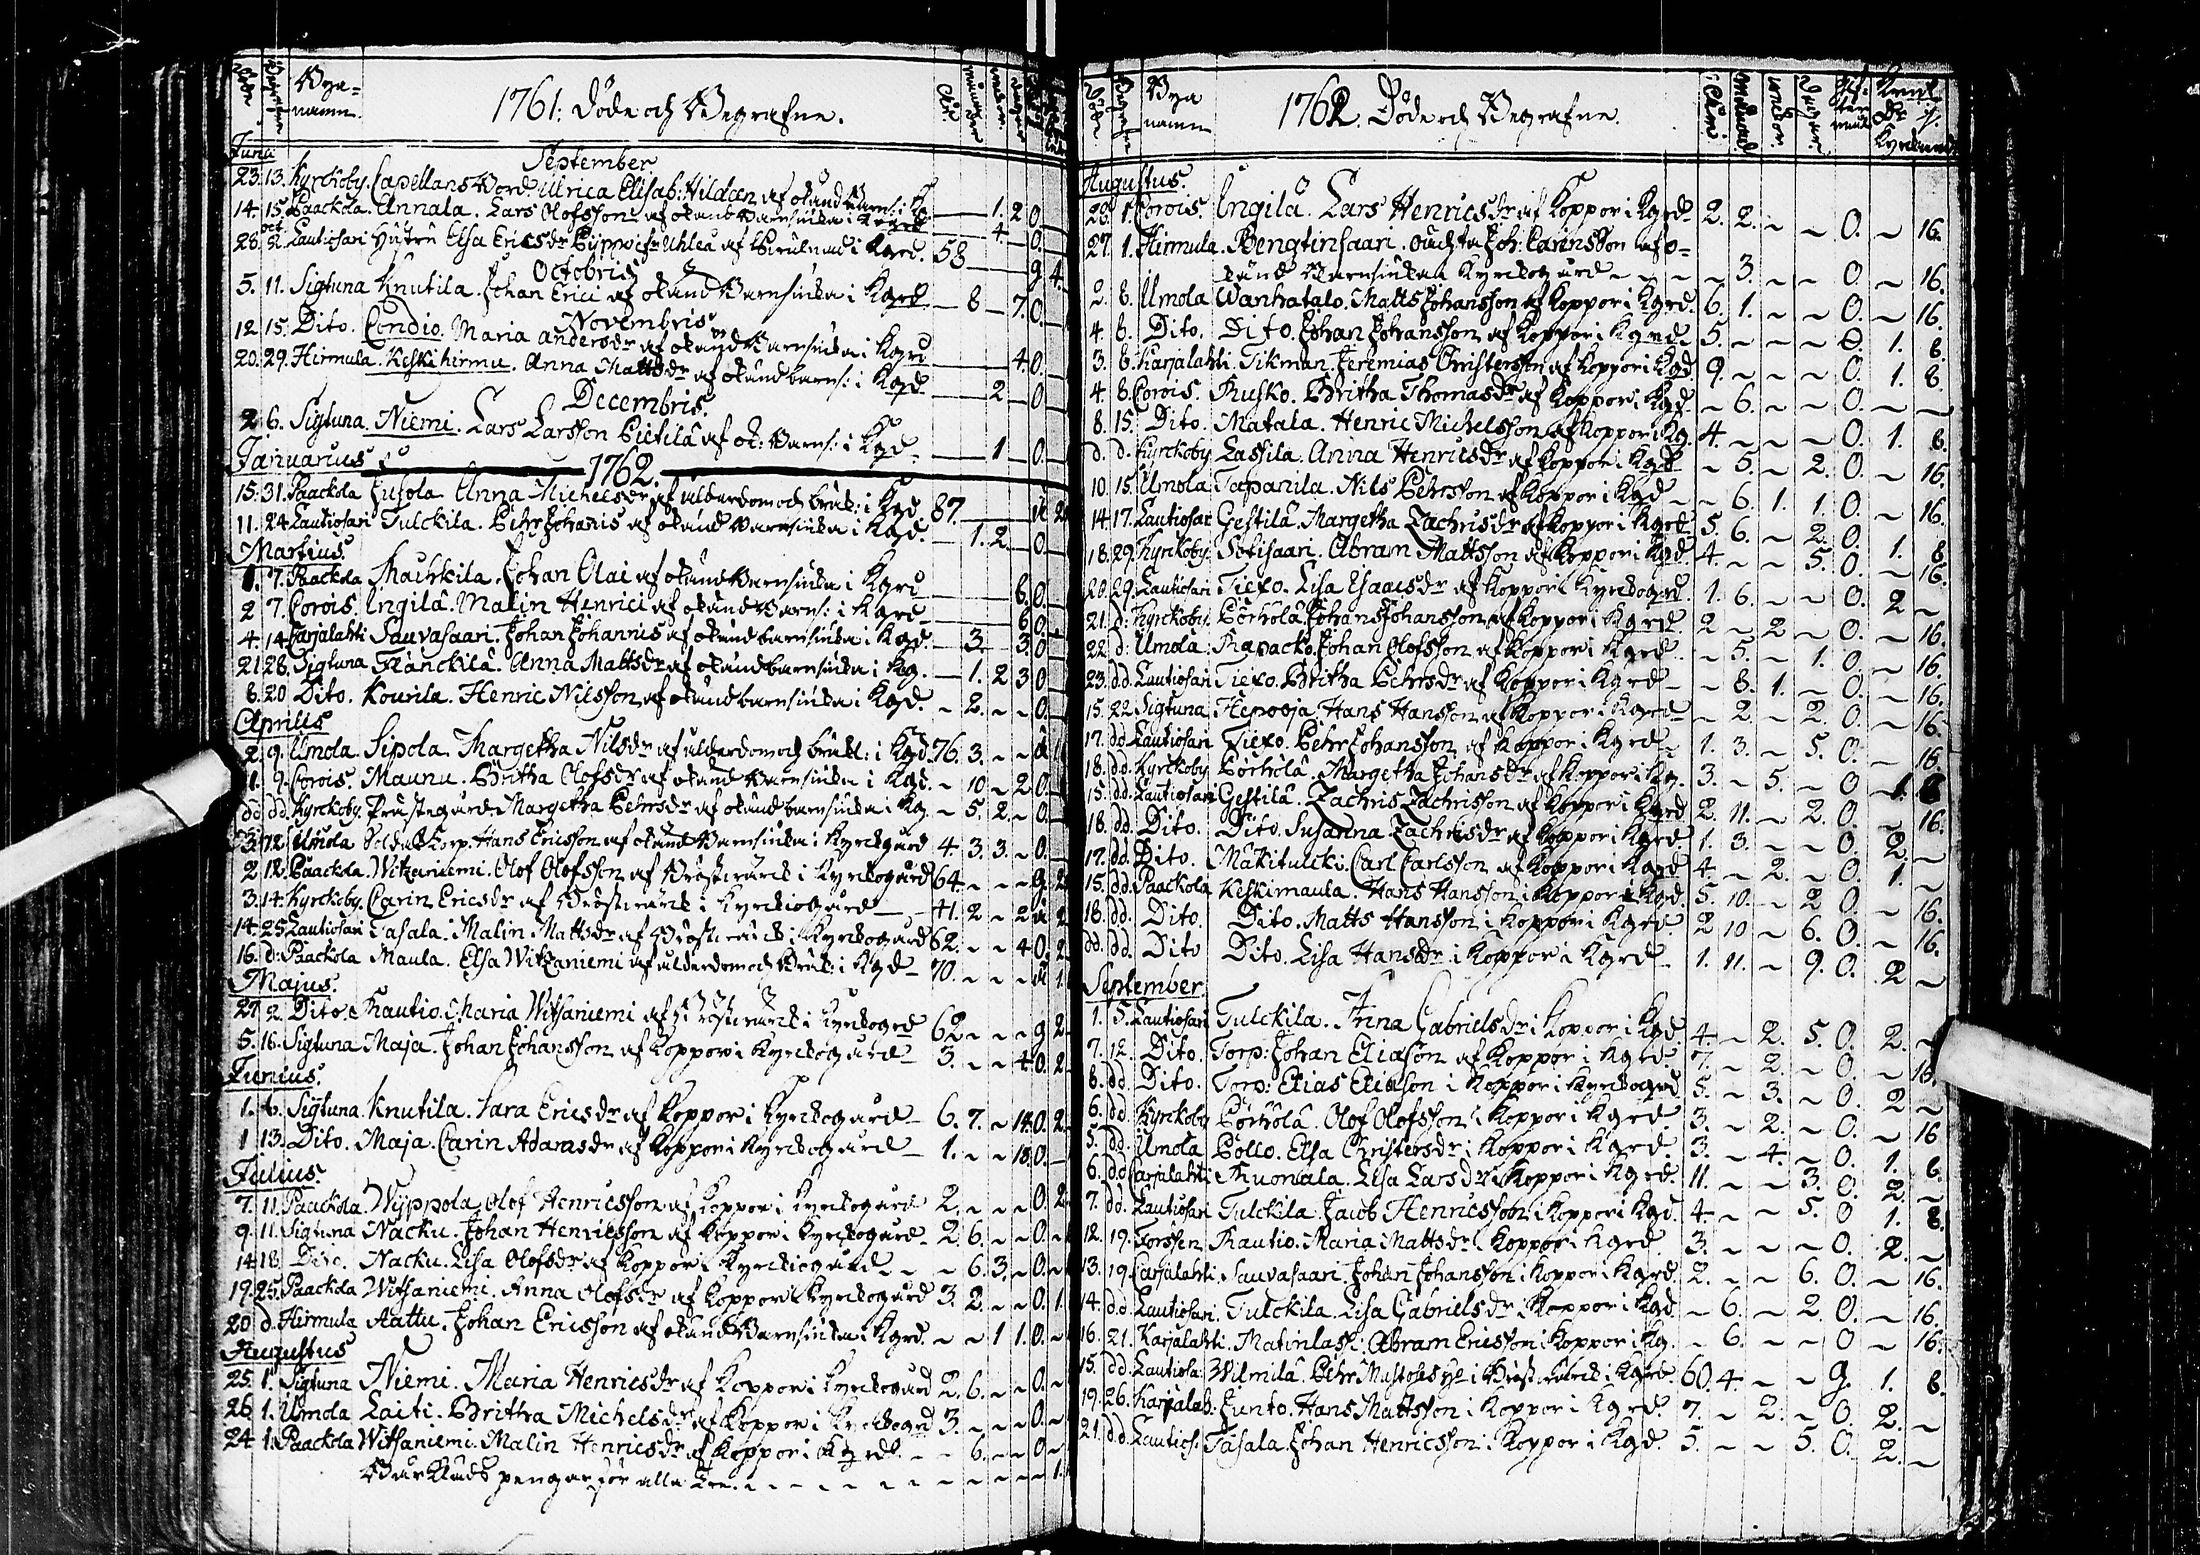 Bya=
namn.
1761: Döde och Begrafne.
Åhr
Junii
September
23. 13. Kyrckoby. Capellans Ulrica Elisab: Hildeen af okänd Barns: i K — 1. 2 0
14. 15. Paackola. Annala. Lars Olofsson af okänd Barnsiuka i Kgrd — 4. 0
oct
28. 2. Lautiosari Hustru Elsa Ericsdr af i Kgrd. 58 — 9 4
Octobris
5. 11. Sigtuna Knutila. Johan Erici af okänd Barnsiuka i Kgrd — 8 — 7. 0.
Novembris
12 15. Dito. Condio. Maria Andersdr af okänd Barnsiuka i Kgrd
20. 29. Hirmula. Keski hirmu. Anna Mattsdr af okänd barns: i Kgrd — 4. 0.
2 — 0
Decembris.
2 6. Sigtuna. Niemi. Lars Larsson Pietilä af ok: Barns: i Kgd. — 1 — 0
Januarius
1762.
15. 31. Paackola Jusola. Anna Michelsdr af ålderdom och bräk: i Kgd 87.
11. 24. Lautiosari Tulckila. Pehr Johanis af okänd Barnsiuka i Kgd. — 1. 2 — 0
Martius.
1. 7. Paackola Machkila. Johan Olai af okänd Barnsiuka i Kgrd 6 0.
2 7. Corois. Ingilä. Malin Henrici af okänd Barns: i Kgrd 6 0.
4. 14. Carjalahti Sauvasaari. Johan Johannis af okänd barnsiuka i Kgd. 3. 3. 0
21 28. Sigtuna Franckilä. Anna Mattsdr af okänd barnsiuka i Kg. — 1. 2 3 0
8. 20 Dito. Kourila. Henric Nilsson af okänd barnsiuka i Kgd. - 2. - - 0.
Aprilis
2. 9. Umola. Sipola. Margetha Nilsdr af ålderdom och bräkl: i Kgd 76. 3. - -
1. 9. Corois. Maunu. Britha Olofsdr af okänd Barnsiuka i Kgd. - 10 - 2 0
dd dd. Kyrckoby. Prästegården Margetha Pehrsdr af okänd barnsiuka i Kg. - 5. 2 - 0
3. 12. Umola Soldat Torp. Hans Ericsson af okänd Barnsiuka i Kyrckgård 4. 3. 3. - 0
2 18. Paackola. Witzaniemi. Olof Olofsson af Bröstwärck i Kyrckogård 64. - - - 9. 2
3. 14. Kyrckoby. Carin Ericsdr af Bröstwärck i Kyrckiogård 41. 2 - 2
14 25. Lautiosari Tasala. Malin Mattsdr af Bröstwärck i Kyrckogård 62. - - 4 0. 2
16. d: Paackola Maula. Elsa Witzaniemi af ålderdom och Bräk: i Kgd 70. - - -
Majus.
27. 2. Dito. Rautio. Maria Witsaniemi af Bröstwärck i Kyrckogrd 62 - - - 9 2
5. 16. Sigtuna Maja. Johan Johansson af Koppor i Kyrckogård 3. - - 4 0. 2
Junius.
1. 6. Sigtuna. Knutila. Sara Ericsdr af Koppor i Kyrckogård 6. 7. - 14. 0. 2
1 13. Dito. Maja. Carin Adamsdr af Koppor i Kyrckogård 1. - - 18. 0.
Julius.
7. 11. Paackola. Wyppola. Olof Henricsson af Koppor i Kyrckogård 2. - - - 0. 2
9. 11. Sigtuna Nacku. Johan Henricsson af Koppor i Kyrckogård 2 6. - - 0.
14 18. Dito. Nacku. Lisa Olofsdr af Koppor i Kyrckiogård - 6. 3. - 0.
19. 25. Paackola Witsaniemi. Anna Olofsdr af Koppor i Kyrckogård 3. 2. - - 0. 1
20 d. Hirmula Aattu. Johan Ericsson af okänd Barnsiuka i Kgrd. - - 1 1. 0.
Augustus
25. 1. Sigtuna Niemi. Maria Henricsdr af Koppor i Kyrckogård 2. 6. - - 0.
26 1. Umola Laiti. Britha Michelsdr af Koppor i Kyrckogrd 3. - - - 0.
24 1. Paackola Witsaniemi. Malin Henricsdr af Koppor i Kgrd. - 6. - - 0
Bårklädspengar för alla
Bya
namn
1762. Döde och Begrafne.
Åhr Månad weckor. Dagar.
Augustus.
28. 1. Corois. Ingilä. Lars Henricsdr af Koppor i Kgrd 2. 2. - - 0. - 16.
27. 1. Hirmula. Bengtinsaari. Joh: Carinsson af o-
känd Barnsiuka Kyrckogård - 3. - - 0. - 16.
2. 8. Umola Wanhatalo. Matts Johansson af Koppor i Kgrd. 6. 1. - - 0. - 16.
4. 8. Dito. Dito. Johan Johansson af Koppor i Kgrd. 5. - - - 0. 1. 8.
3. 8. Karjalahti. Tikman. Jeremias Christersson af Koppor i Kgd. 9. - - - 0. 1. 8.
4. 8. Corois. Rusko. Britha Thomasdr af Koppor i Kgd. - 6. - - 0. - -
8. 15. Dito. Matala. Henric Michelsson af Koppor i Kg. 4. - - - 0. 1. 8.
d. d. Kyrckoby. Lassila. Anna Henricsdr af Koppor i Kgrd - 5. - 2. 0. - 16.
10. 15. Umola. Tapanila. Nils Pehrsson af Koppor i Kgd - 6. 1. 1. 0. - 16.
14 17. Lautiosar. Gestilä. Margetha Zachrisdr af Koppor i Kgrd 5. 6. - 2. 0. 1. 8
18. 29. Kyrckoby. Sotisaari. Abram Mattsson af Koppor i Kgd. 4. - - 5. 0. - 16.
20. 29. Lautiosari Tiexo. Lisa Isaacsdr af Koppor i Kyrckogrd. 1. 6. - - 0. 2 -
21. d: Kyrckoby. Pörhölä. Johan Johansson af Koppor i Kgrd. 2 - 2 - 0. - 16.
22. d: Umola. Rapacko. Johan Olofsson af Koppor i Kgrd - 5. - 1. 0. - 16.
23. dd. Lautiosari Tiexo. Britha Pehrsdr af Koppor i Kgrd - 8. 1. - 0. - 16.
15. 22. Sigtuna. Hepooja. Hans Hansson af Koppor i Kgrd - 2. - 2. 0. - 16.
17. dd. Lautiosari Tiexo. Pehr Johansson af Koppor i Kgrd. 1. 3. - 5. 0. - 16.
18. dd. Kyrckoby. Pörhölä. Margetha Johansdr af Koppor i Kg. 3. - 5. - 0 - 1. 8
15. dd. Lautiosari Gestilä. Zachris Zachrisson af Koppor i Kgrd 2. 11. - 2. 0. - 16.
18. dd. Dito. Dito. Susanna Zachrisdr af Koppor i Kgrd. 1. 3. - - 0. 2. -
17. dd. Dito. Mäkitulcki. Carl Carlsson af Koppor i Kgrd 4. - 2. - 0. 1. -
15. dd. Paackola Keskimaula. Hans Hansson i Koppor i Kgd. 5. 10. - 2 0. - 16.
18. dd. Dito. Dito. Matts Hansson i Koppor i Kgrd 2 10 - 6. 0. - 16.
dd. dd. Dito Dito. Lisa Hansdr i Koppor i Kgrd 1. 11. - 9. 0. 2 -
September.
1. 5. Lautiosari Tulckila. Anna Gabrielsdr i Koppor i Kgd. 4. - 2. 5. 0. 2. -
7. 12. Dito. Torp: Johan Eliason af Koppor i Kgrd 7. - 2. - 0. - 16.
8. dd. Dito. Torp: Elias Eliason i Koppor i Kyrckogrd 5. - 3. - 0. 2 -
6. dd Kyrckoby Pörhölä. Olof Olofsson i Koppor i Kgrd. 3. - 2. - 0. - 16
5. dd. Umola Pollo. Elsa Christersdr i Koppor i Kgrd. 3. - 4. - 0. 1. 8.
6. dd Carjalahti Ruonala. Lisa Larsdr i Koppor i Kgrd. 11. - - 3. 0. 2. -
7. dd. Lautiosari Tulckila. Jacob Henricsson i Koppor i Kgd. 4. - - 5. 0 1. 8.
12. 19. Torssen Rautio. Maria Mattsdr i Koppor i Kgrd 3. - - - 0. 2. -
13. 19. Carjalahti. Sauvasaari. Johan Johansson i Koppor i Kgrd. 2. - - 6. 0. - 16.
14. dd. Lautiosari. Tulckila. Lisa Gabrielsdr i Koppor i Kgd - 6. - 2. 0. - 16.
16. 21. Karjalahti. Matinlassi. Abram Ericsson i Koppor i Kg. - 6. - - 0 - 16.
15. dd. Lautiosa: Wilmilä. Pehr i Bröstwärck i Kgrd. 60. 4. - - 9. 1. 8.
19. 26. Karjalah: Junto. Hans Mattsson i Koppor i Kgrd. 7. - 2. - 0. 2. -
21. dd. Lautios: Tasala. Johan Henricsson i Koppor i Kgd. 5. - - 5. 0. 2. -